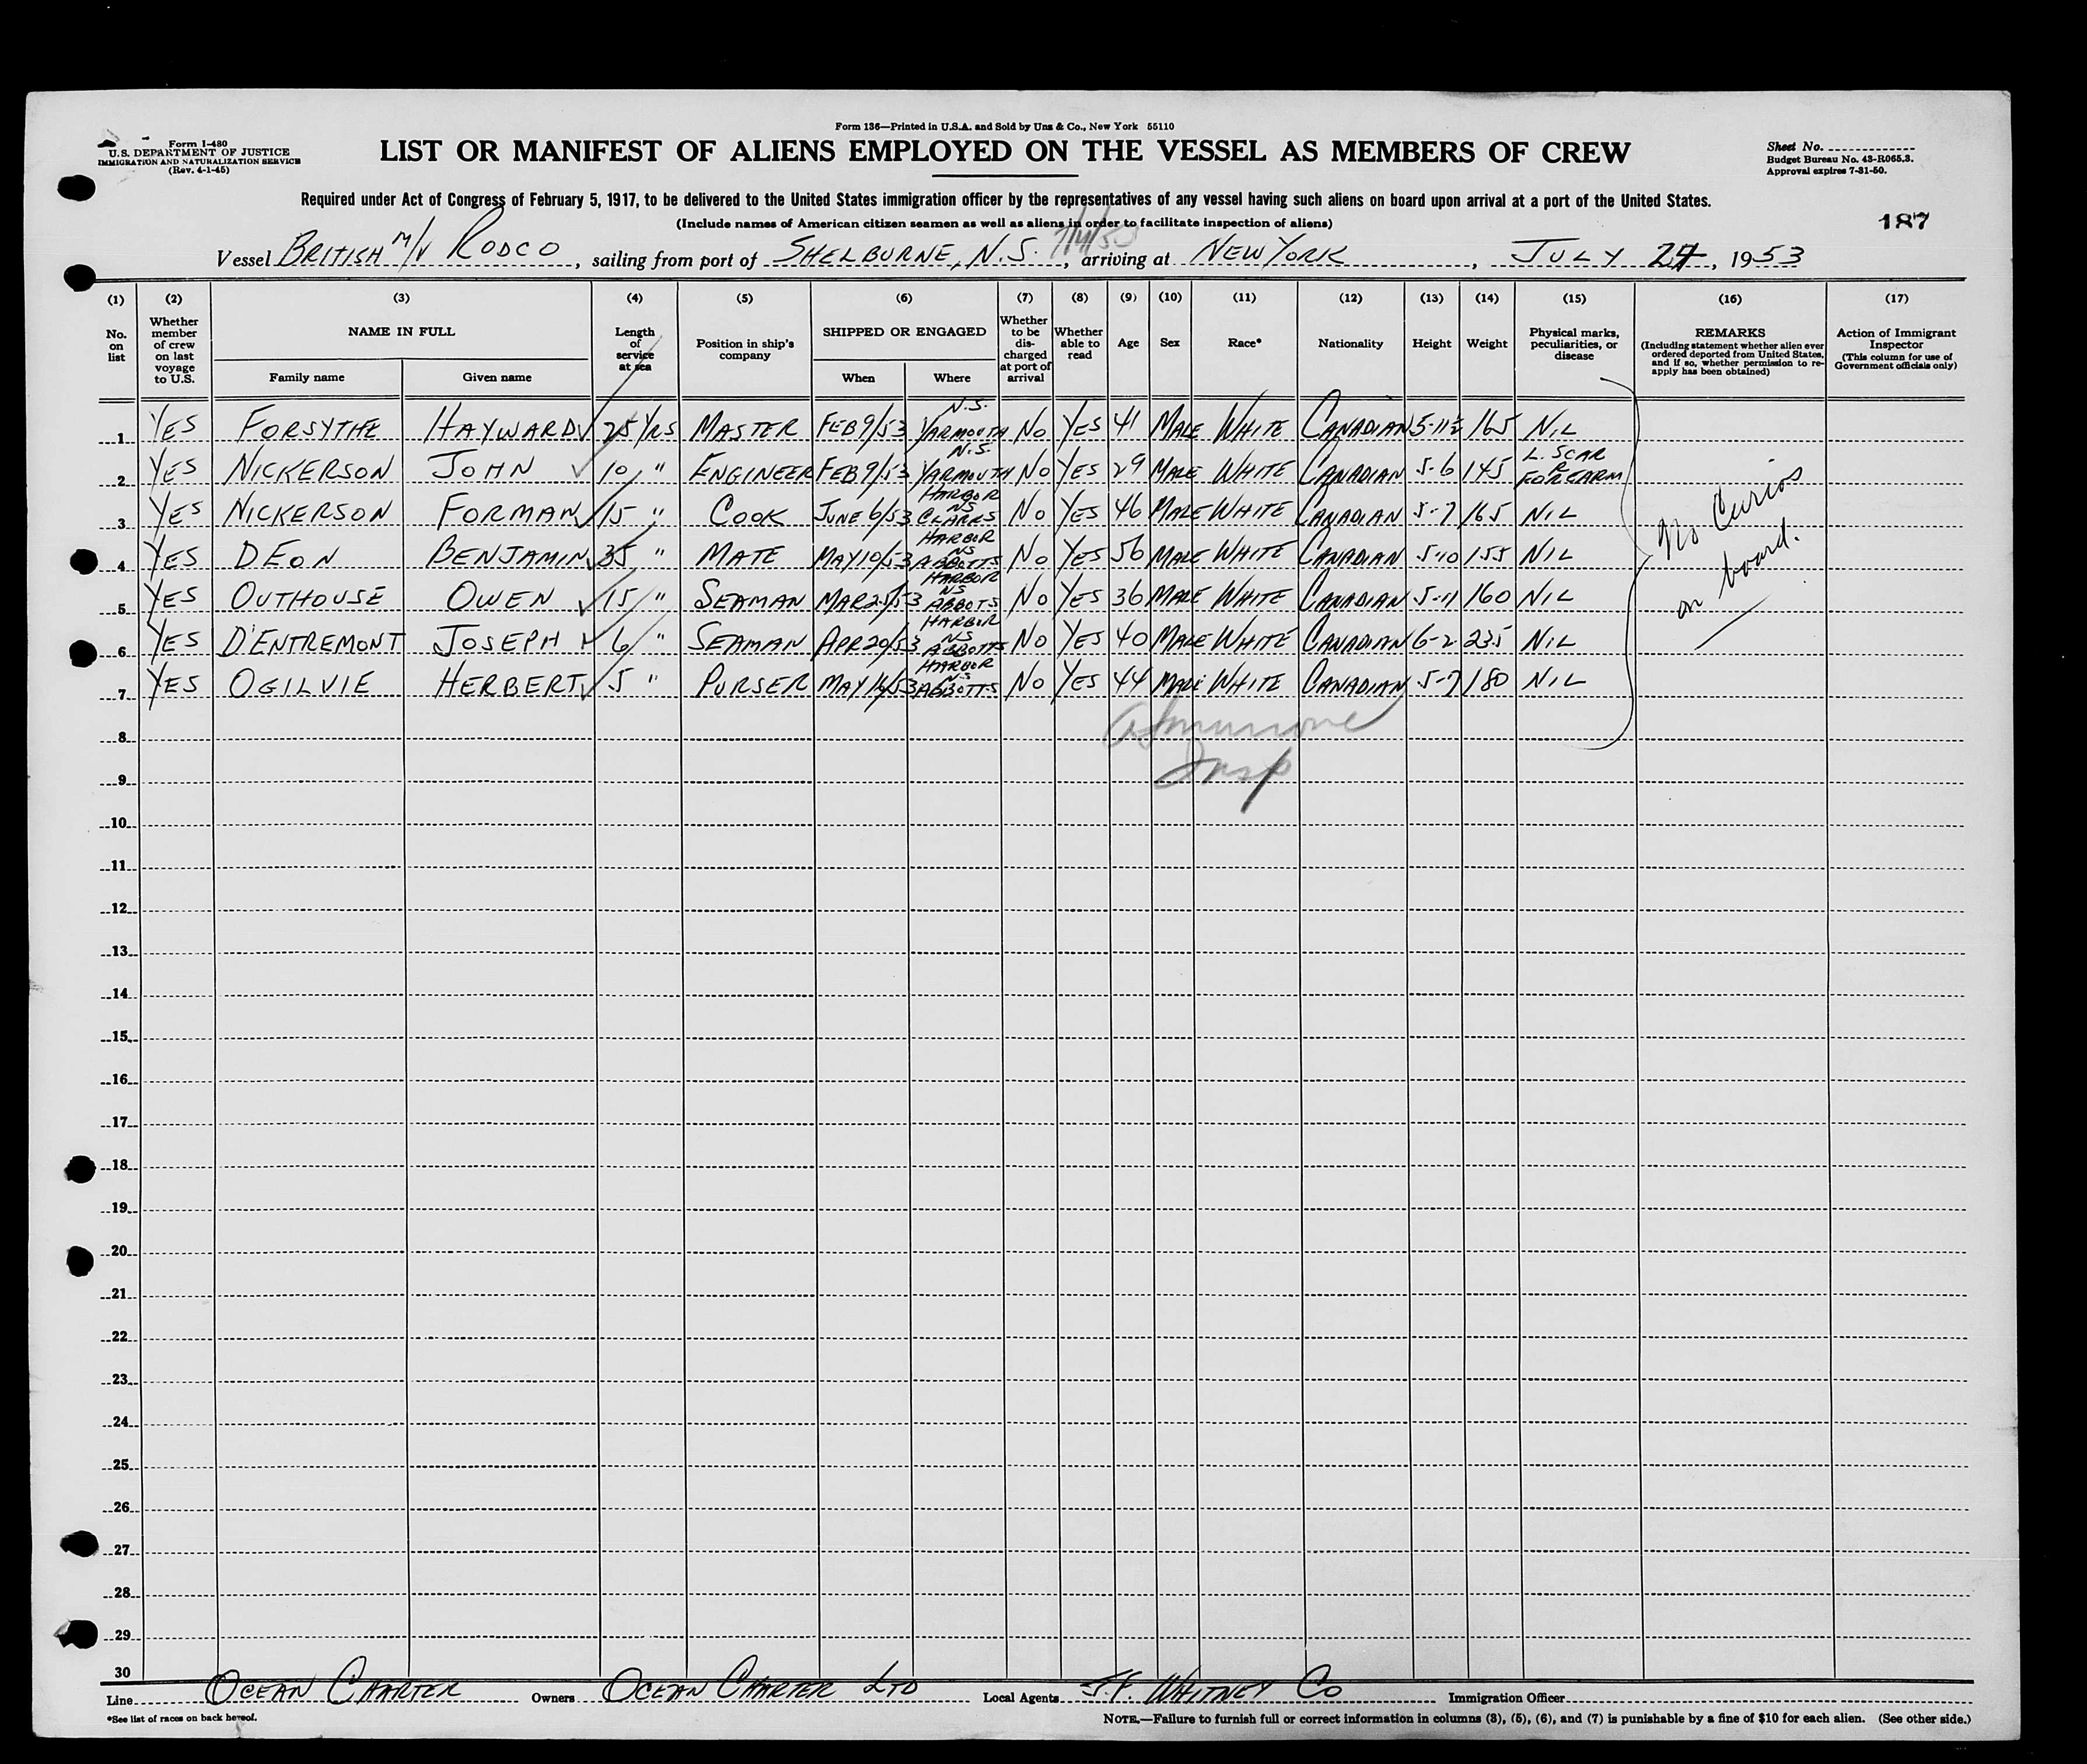 Form 136—Printed in U.S.A. and Sold by Unz & Co., New York 55110
Form I-480
U.S. DEPARTMENT OF JUSTICE
IMMIGRATION AND NATURALIZATION SERVICE
(Rev. 4-1-45)
LIST OR MANIFEST OF ALIENS EMPLOYED ON THE VESSEL AS MEMBERS OF CREW
Sheet No.
Budget Bureau No. 43-R065.3.
Approval expires 7-31-50.
Required under Act of Congress of February 5, 1917, to be delivered to the United States immigration officer by the representatives of any vessel having such aliens on board upon arrival at a port of the United States.
(Include names of American citizen seamen as well as aliens in order to facilitate inspection of aliens)
187
Vessel BRITISH M/V RODCO, sailing from port of SHELBURNE, N.S., arriving at NEW YORK, JULY 24, 1953
(1) (2) (3) (4) (5) (6) (7) (8) (9) (10) (11) (12) (13) (14) (15) (16) (17)
No. on list
Whether member of crew on last voyage to U.S.
NAME IN FULL
Family name Given name
Length of service at sea
Position in ship's company
SHIPPED OR ENGAGED
When Where
Whether to be discharged at port of arrival
Whether able to read
Age
Sex
Race*
Nationality
Height
Weight
Physical marks, peculiarities, or disease
REMARKS
(Including statement whether alien ever ordered deported from United States, and if so, whether permission to re-apply has been obtained)
Action of Immigrant Inspector
(This column for use of Government officials only)
1 YES FORSYTHE HAYWARD 25 YRS MASTER FEB 9/53 N.S. YARMOUTH NO YES 41 MALE WHITE CANADIAN 5-11½ 165 NIL
2 YES NICKERSON JOHN 10 " ENGINEER FEB 9/53 N.S. YARMOUTH NO YES 29 MALE WHITE CANADIAN 5-6 145 L. SCAR R FOREARM
3 YES NICKERSON FORMAN 15 " COOK JUNE 6/53 HARBOR NS CLARKS NO YES 46 MALE WHITE CANADIAN 5-7 165 NIL
4 YES DEON BENJAMIN 35 " MATE MAY 10/53 HARBOR NS ABBOTTS NO YES 56 MALE WHITE CANADIAN 5-10 155 NIL
5 YES OUTHOUSE OWEN 15 " SEAMAN MAR 25/53 HARBOR NS ABBOTS NO YES 36 MALE WHITE CANADIAN 5-11 160 NIL
6 YES D'ENTREMONT JOSEPH 6 " SEAMAN APR 20/53 HARBOR NS ABBOTTS NO YES 40 MALE WHITE CANADIAN 6-2 235 NIL
7 YES OGILVIE HERBERT 5 " PURSER MAY 16/53 HARBOR N.S ABBOTTS NO YES 44 MALE WHITE CANADIAN 5-7 180 NIL
No Curios
on board.
Insp
8
9
10
11
12
13
14
15
16
17
18
19
20
21
22
23
24
25
26
27
28
29
30
Line OCEAN CHARTER Owners OCEAN CHARTER LTD Local Agents J.F. WHITNEY CO Immigration Officer
*See list of races on back hereof.
NOTE.—Failure to furnish full or correct information in columns (3), (5), (6), and (7) is punishable by a fine of $10 for each alien. (See other side.)